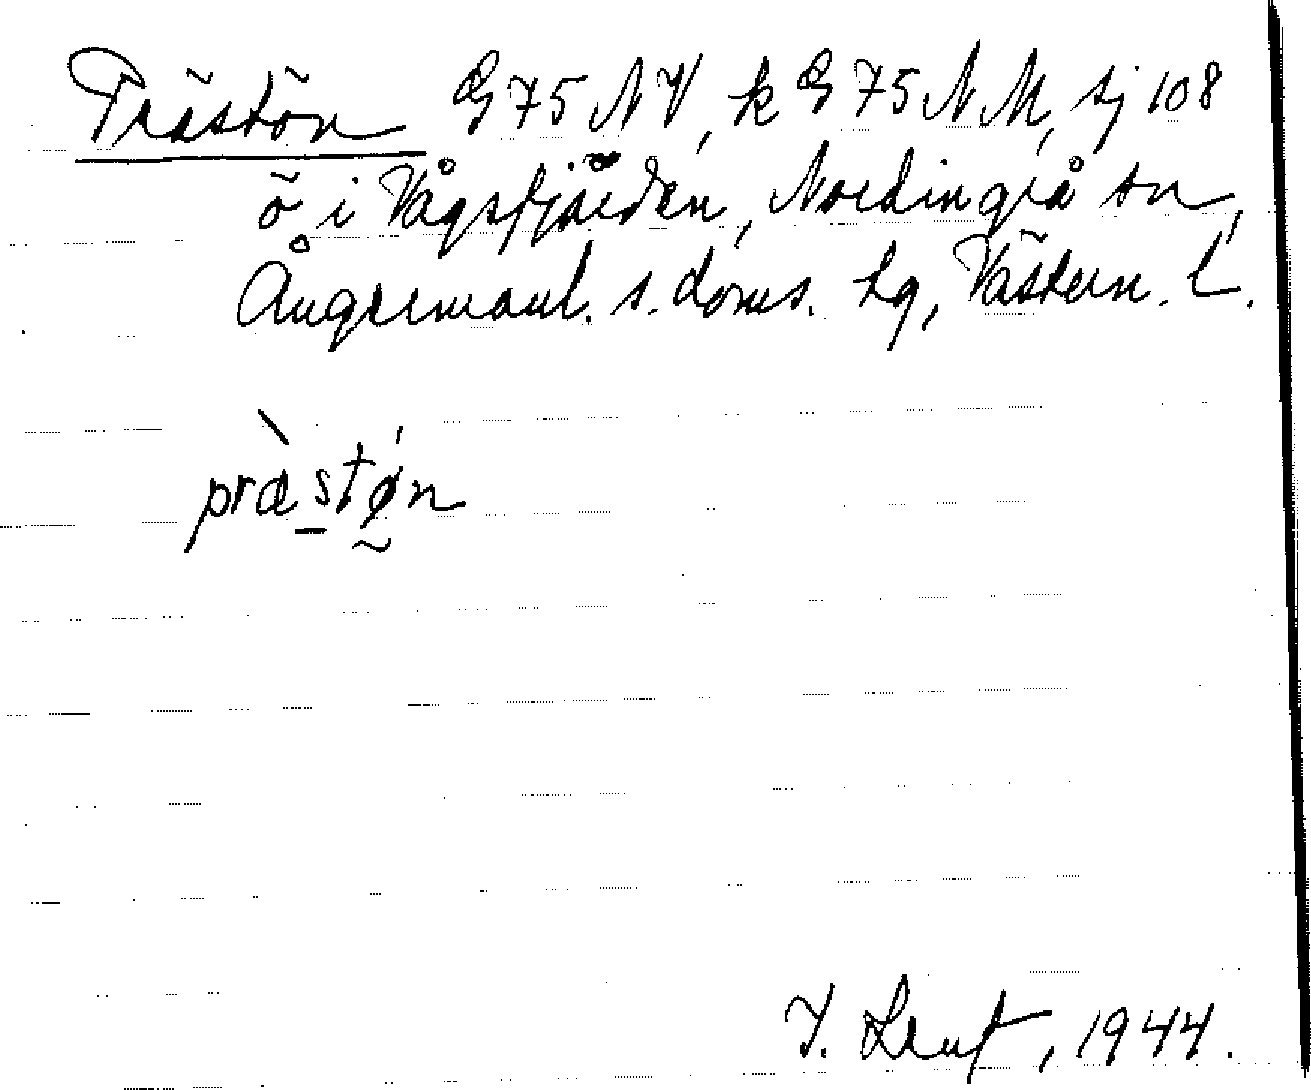 Prästön G 75 NV, k G 75 N M, sj 108
ö i Vågsfjärden, Nordingrå sn,
Ångermanl. s. doms. tg, Västern. L.
præ̀stǿn
1944.